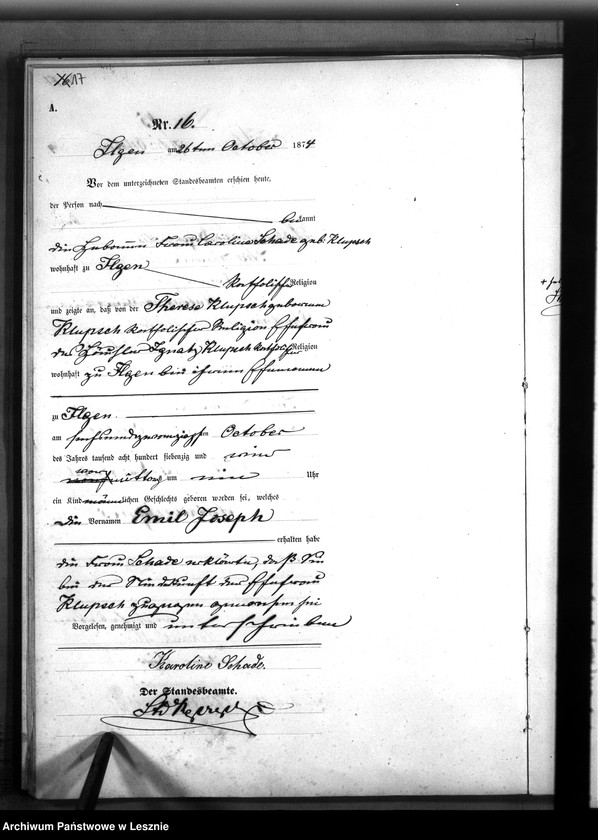 17
A.
Nr. 16.
Ilgen am 26ten October 1874
Vor dem unterzeichneten Standesbeamten erschien heute,
der Person nach
bekannt
die Hebamme Frau Caroline Schade geb. Klupsch
wohnhaft zu Ilgen
katholischer Religion
und zeigte an, daß von der Therese Klupsch geborenen
Klupsch katholischer Religion Ehefrau
des Häusler Ignatz Klupsch katholischer Religion
wohnhaft zu Ilgen bei ihrem Ehemanne
zu Ilgen
am sechsundzwanzigsten October
des Jahres tausend acht hundert siebenzig und vier
mittag um ein Uhr
ein Kind männlichen Geschlechts geboren worden sei, welches
die Vornamen Emil Joseph
erhalten habe
die Frau Schade erklärte, daß sie
bei der Niederkunft der Ehefrau
Klupsch zugegen gewesen sei
Vorgelesen, genehmigt und unterschrieben
Karoline Schade.
Der Standesbeamte.
Archiwum Państwowe w Lesznie